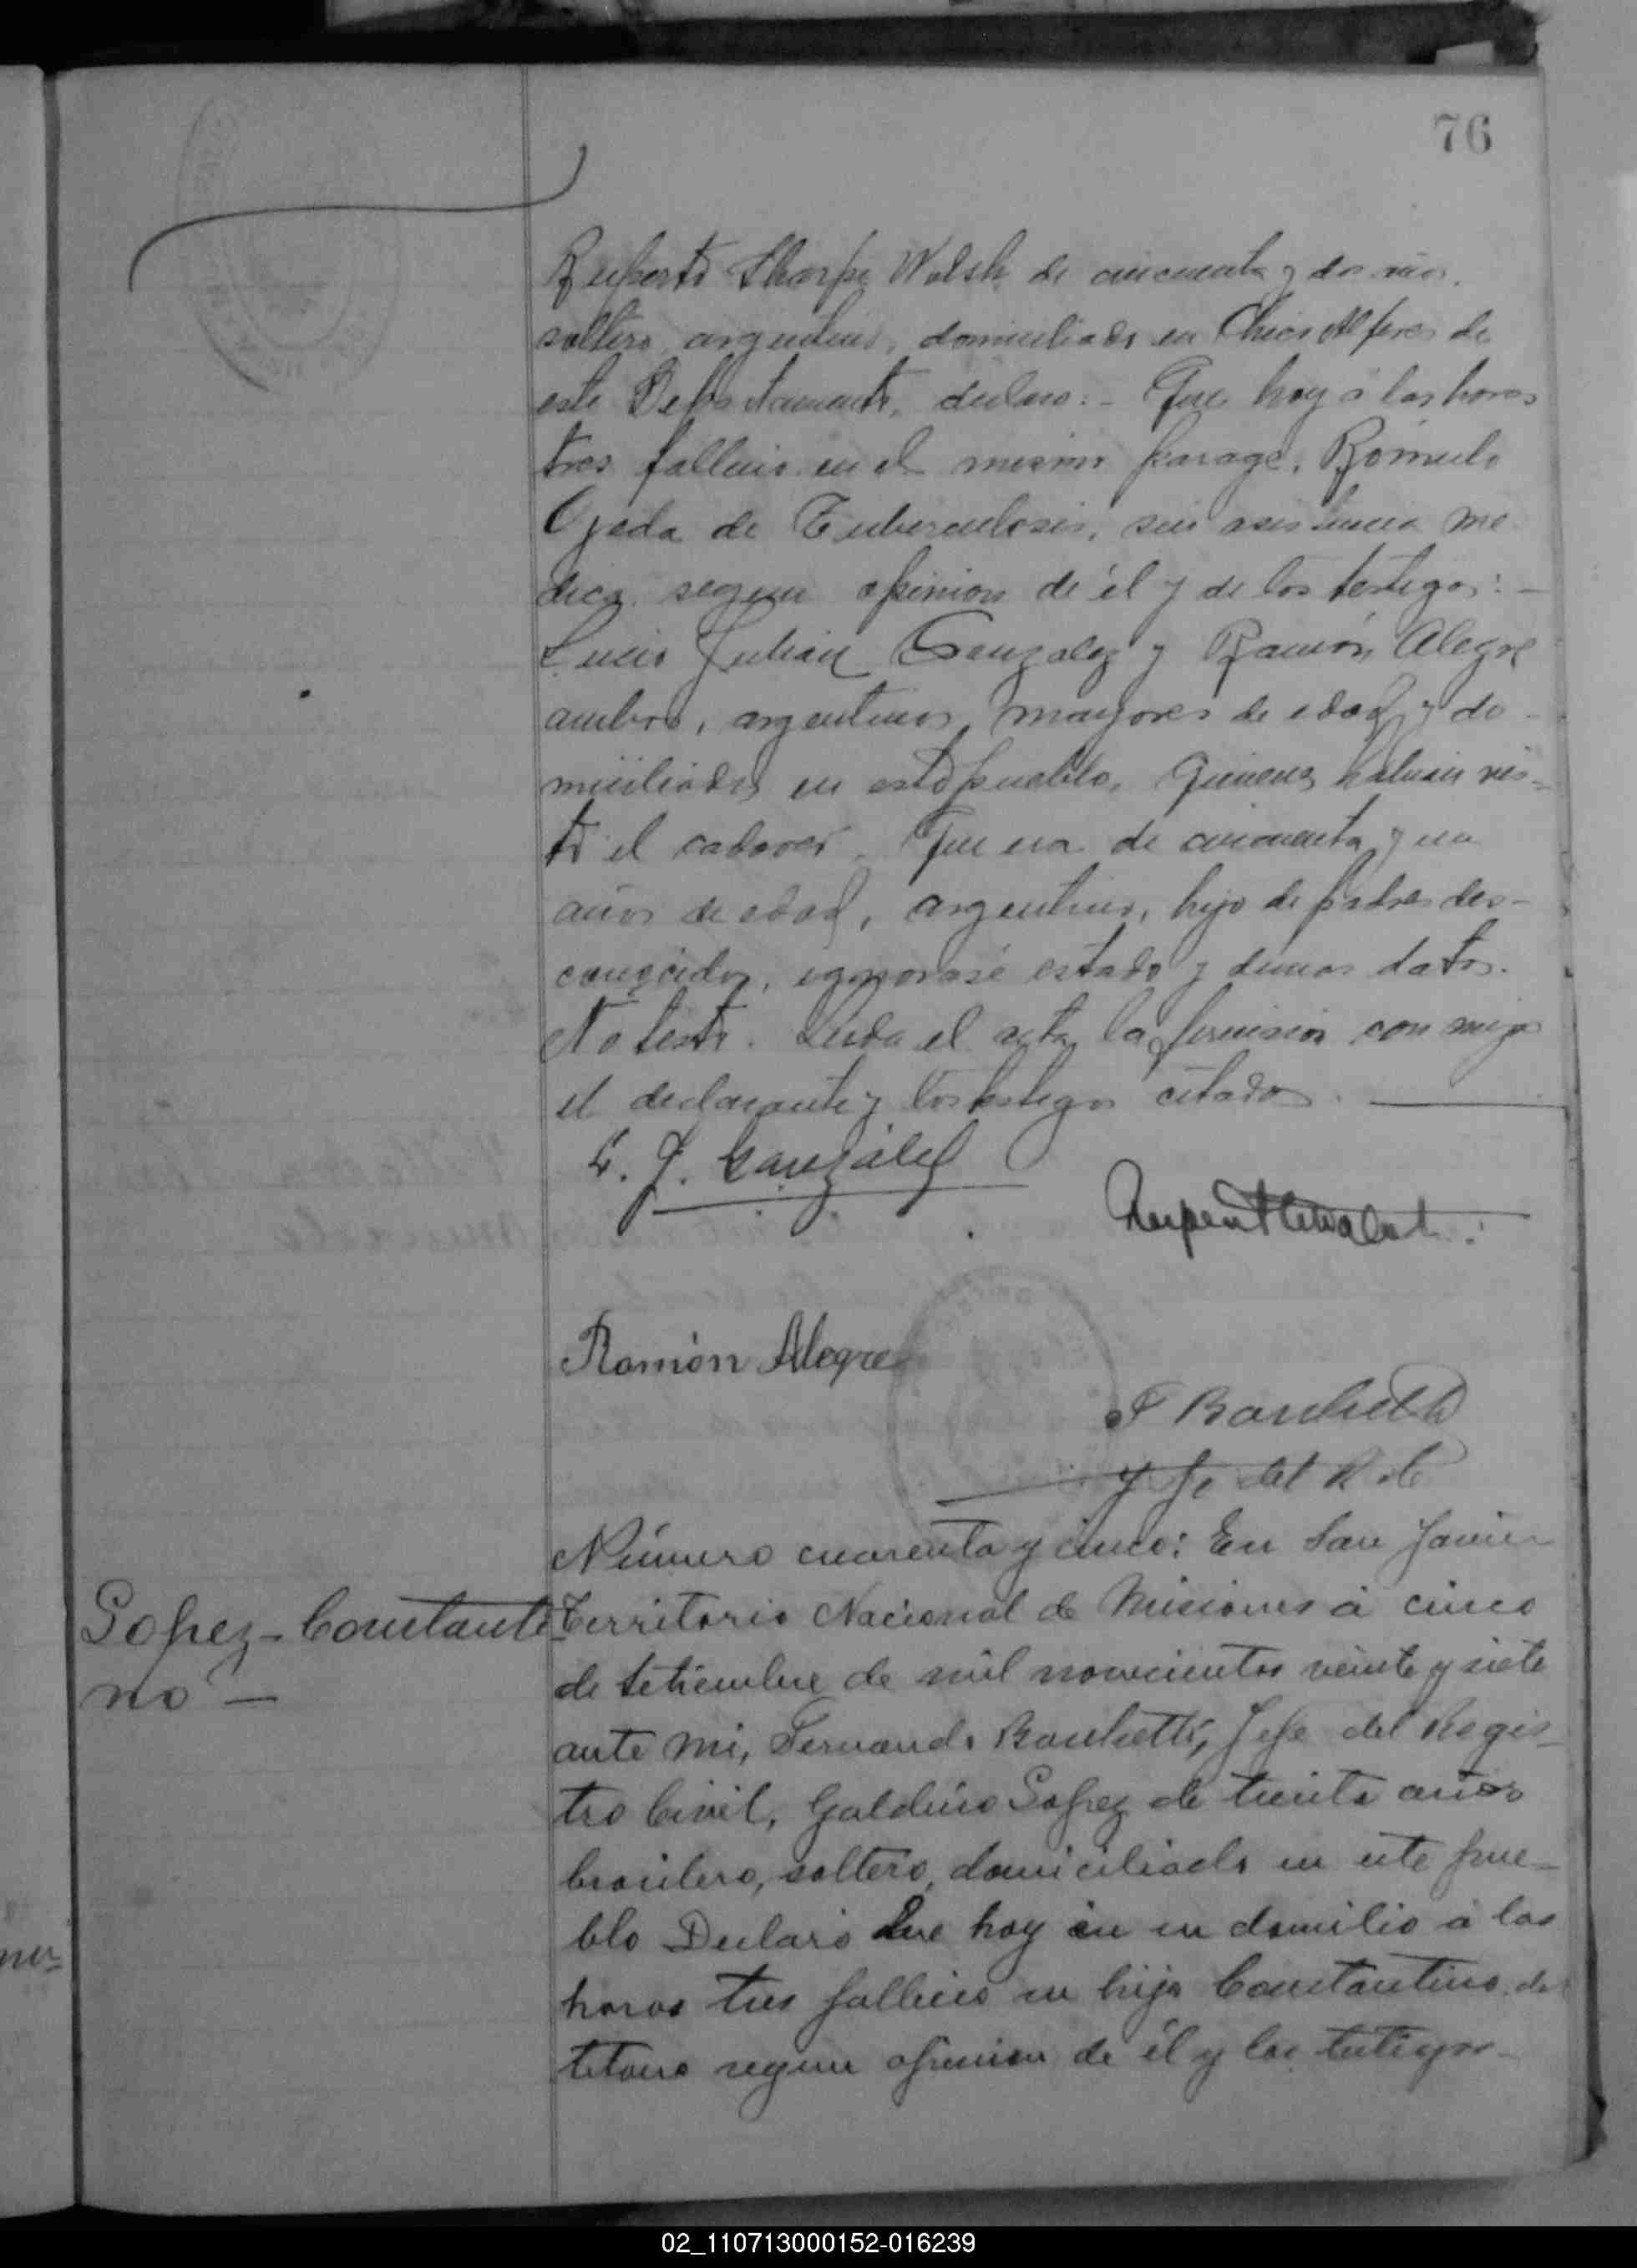 76
Ruperto Thorpe Walsh de cincuenta y dos años,
soltero, argentino, domiciliado en Chico Alferes de
este Departamento, declaro: - Que hoy á las horas
tres fallecio en el mismo parage, Rómulo
Ojeda de Tuberculosis, sin asistencia me
dica segun opinion de él y de los testigos: -
Lucio Julian Gonzalez y Ramón Alegre
ambos, argentinos, mayores de edad y do -
miciliados en este pueblo, quienes habian vis -
to el cadaver. Que era de cincuenta y un
años de edad, argentino, hijo de padres des -
conocidos, ignorase estado y demas datos.
No testó. Leida el acta la firmaron con migo
el declarante y los testigos citados.
L. J. González
Rupert Walsh
Ramón Alegre
F Banchetti
Jefe del R. C
Número cuarenta y cinco: En San Javier
Lopez - Constanti
no -
Territorio Nacional de Misiones á cinco
de Setiembre de mil novecientos veinte y siete
ante mi, Fernando Banchetti, Jefe del Regis -
tro Civil, Galdino Lopez de treinta años
brasilero, soltero, domiciliado en este pue -
blo Declaró Que hoy en su domilio á las
horas tres fallecio su hijo Constantino de
tetano segun opinion de él y los testigos -
02_110713000152-016239